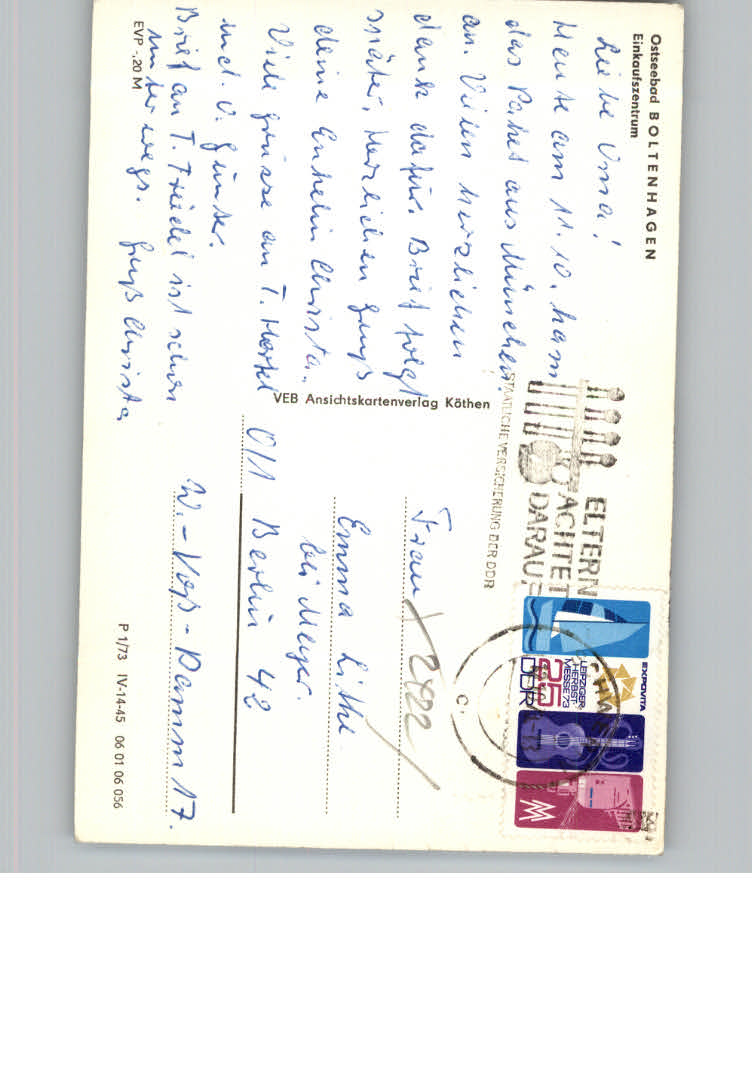 Ostseebad BOLTENHAGEN
Einkaufszentrum
Liebe Oma!
Heute am 11.10. kam
das Paket aus München
an. Vielen herzlichen
dank dafür. Brief folgt
später. Herzlichen Gruß
deine Enkelin Christa.
Viele grüsse an T. Hertel
und. O. Günter.
Brief an T. Friedel ist schon
unterwegs. Gruß Christa
EVP -,20 M
VEB Ansichtskartenverlag Köthen
STAATLICHE VERSICHERUNG DER DDR
ELTERN
ACHTET
DARAUF
EXPOVITA
LEIPZIGER
HERBST-
MESSE 73
25
DDR
Frau
2422
Emma
bei Meyer.
0/1 Berlin 42
W.-Voß-Damm 17.
P 1/73 IV-14-45 06 01 06 056